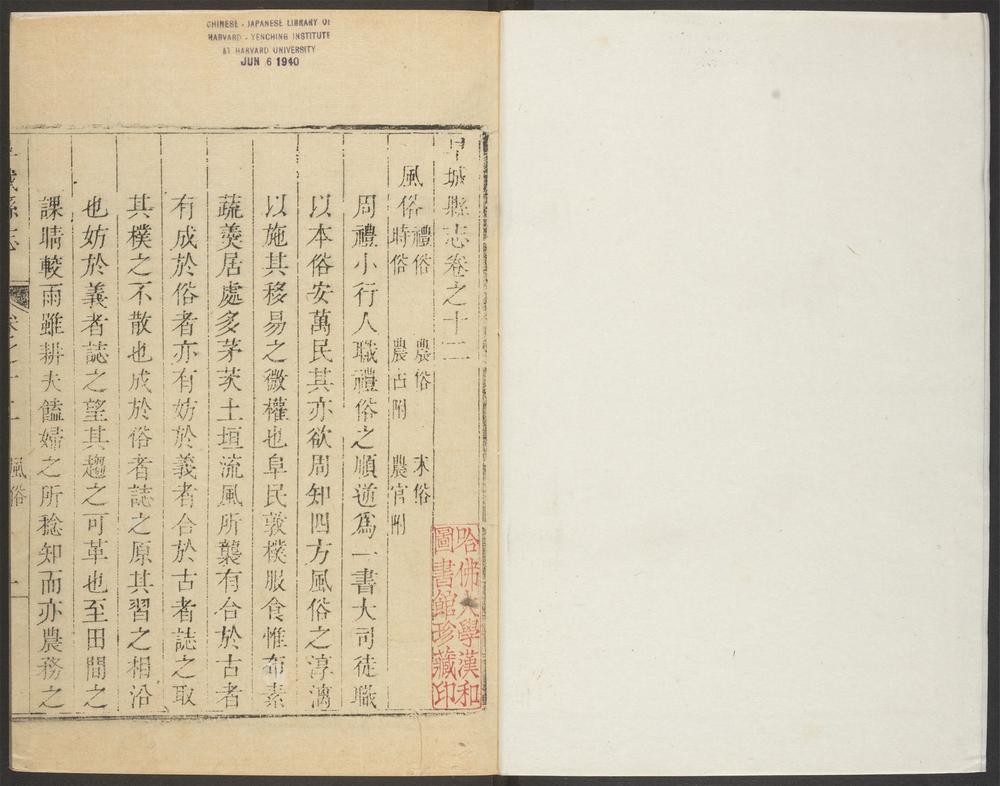 CHINESE - JAPANESE LIBRARY OF
HARVARD - YENCHING INSTITUTE
AT HARVARD UNIVERSITY
JUN 6 1940
阜城縣志卷之十二
風俗
禮俗 農俗 末俗
時俗 農占附 農官附
周禮小行人職禮俗之順逆爲一書大司徒職
以本俗安萬民其亦欲周知四方風俗之淳漓
以施其移易之微權也阜民敦樸服食惟布素
蔬羹居處多茅茨土垣流風所襲有合於古者
有成於俗者亦有妨於義者合於古者誌之取
其樸之不散也成於俗者誌之原其習之相沿
也妨於義者誌之望其趨之可革也至田間之
課晴較雨雖耕夫饁婦之所稔知而亦農務之
城縣志 卷之十二 風俗 一
哈佛大學漢和
圖書館珍藏印